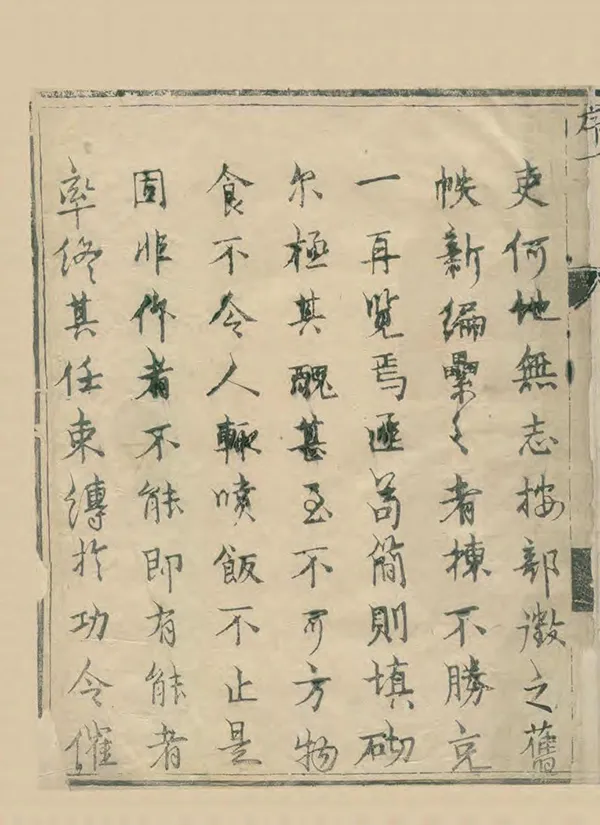 吏何地無志按部徵之舊
帙新編纍々者棟不勝充
一再覽焉匪苟簡則填砌
尔極其醜甚至不可方物
食不令人輙噴飯不止是
固非作者不能即有能者
率終其任束縛於功令催
序一